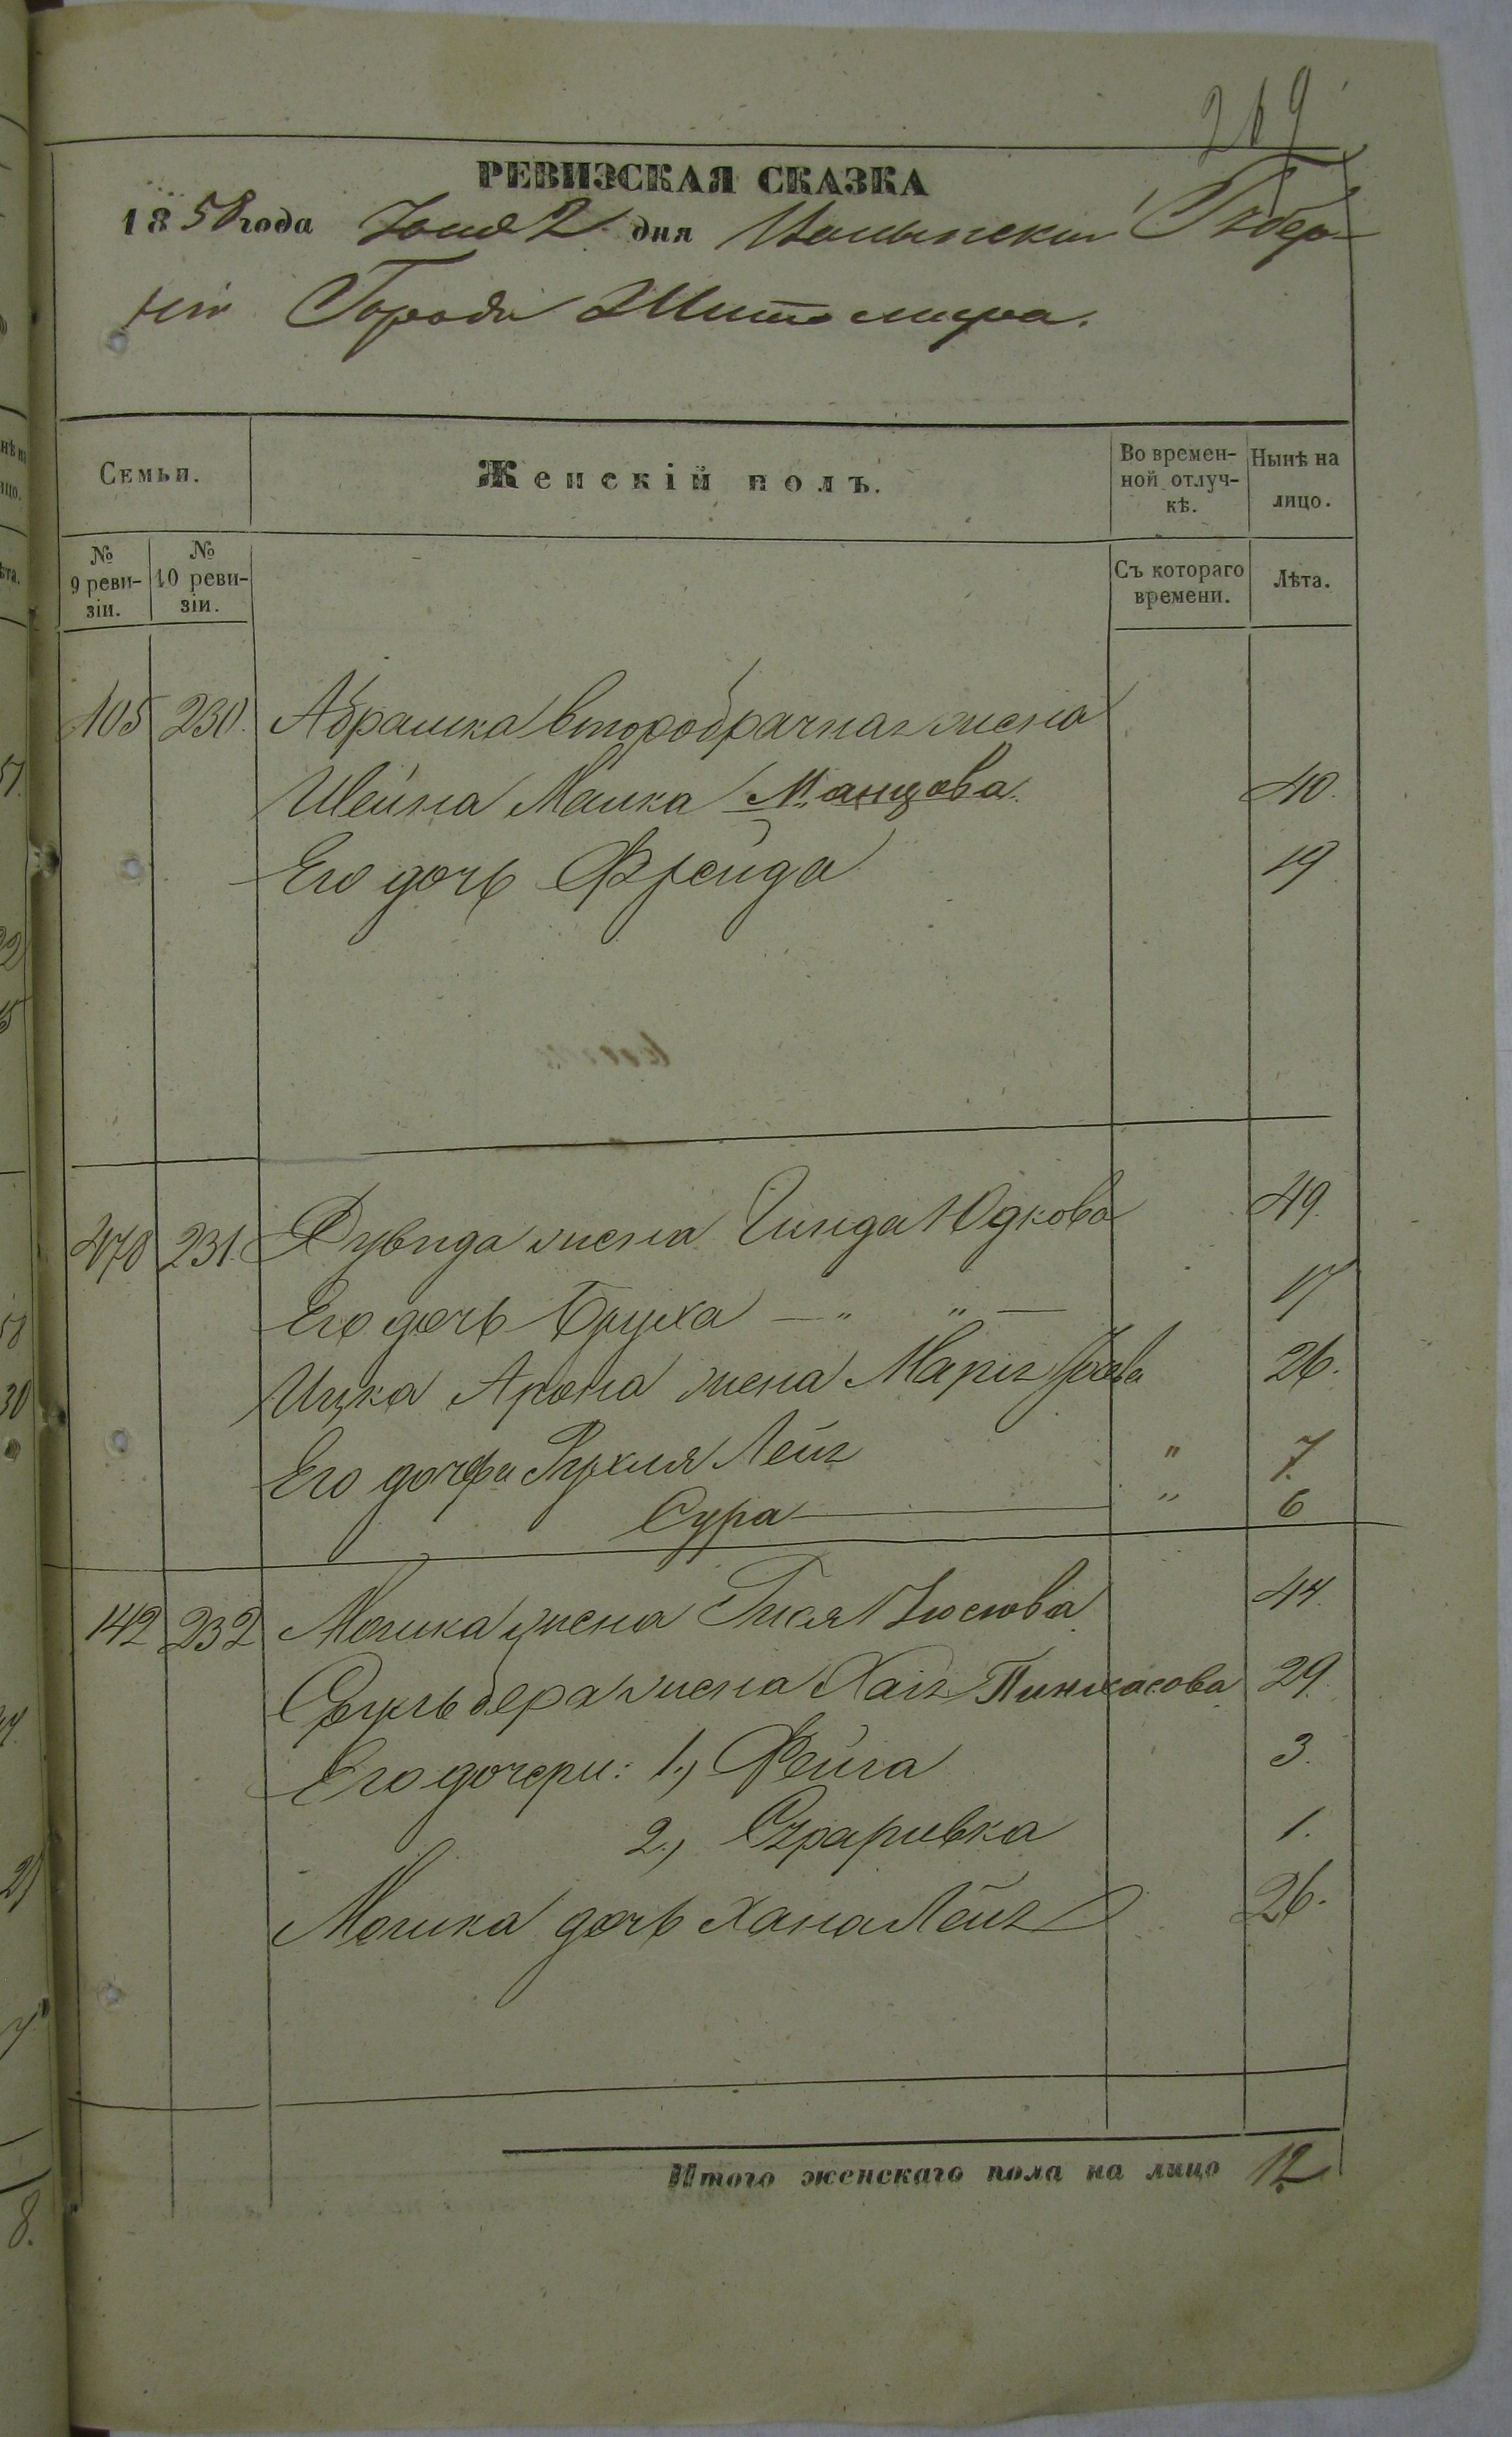 269
РЕВИЗСКАЯ СКАЗКА
1858 года Юня 2 дня Волынской Губер-
ніи Города Житомира.
Семьи.
Женскій полъ.
Во времен-
ной отлуч-
кѣ.
Нынѣ на
лицо.
№
9 реви-
зіи.
№
10 реви-
зіи.
Съ котораго
времени.
Лѣта.
105 230. Абрашка второбрачная жена
Шейна Малка Манцова. 40.
Его дочь Фрейда 19
478 231. Дувида жена Гинда Юдкова 49.
Его дочь Бруха — " " — 17
Ицка Арона жена Марія 26.
Его дочери Рухля Лея " 7.
Сура " 6
142 232 Мошка жена Гися Иосіова 44.
Сруль бера жена Хая Пинхасова 29.
Его дочери: 1.) Фейга 3.
2.) 1.
Мошка дочь Хана Лея 26.
Итого женскаго пола на лицо 12